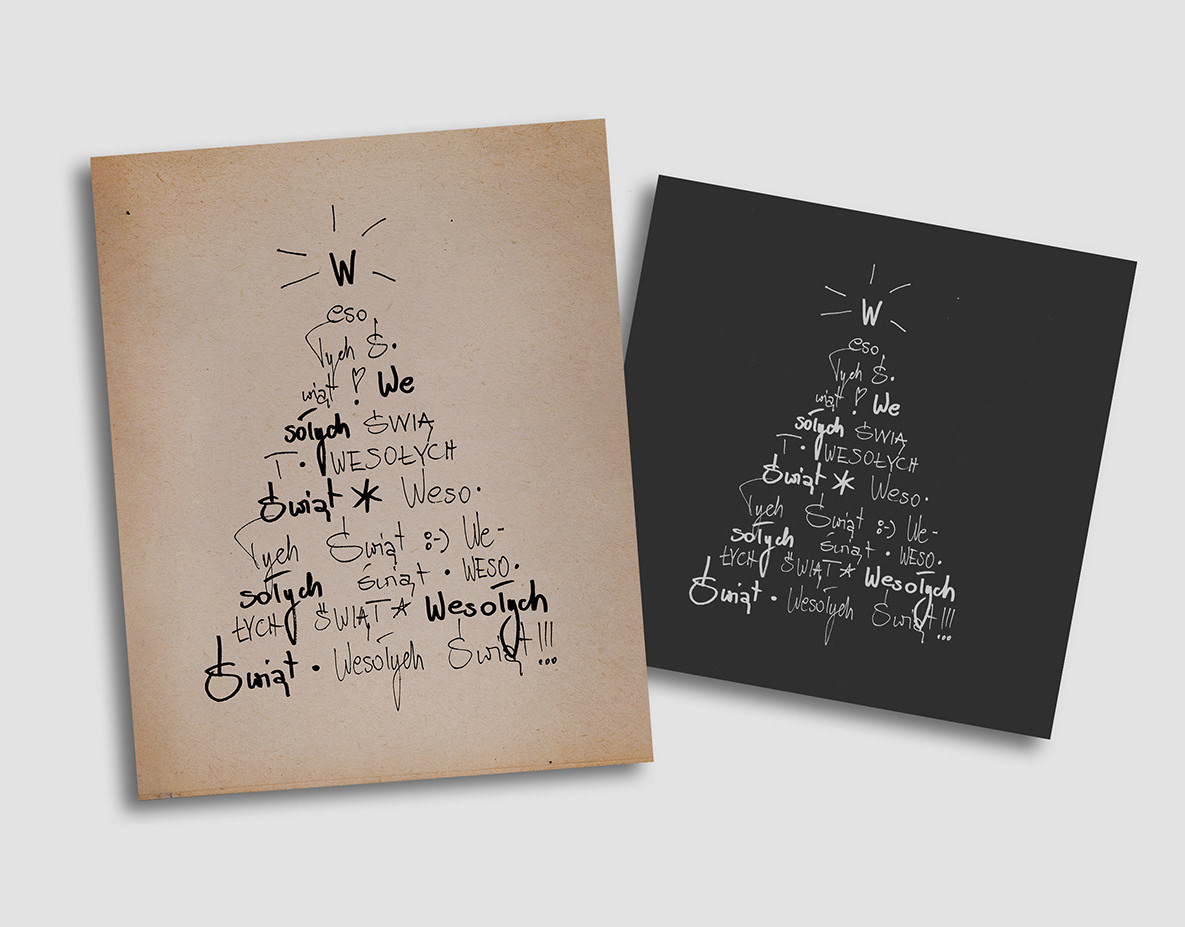 W
eso
łych Ś.
wiąt! We
sołych ŚWIĄ
T • WESOŁYCH
Świąt * Weso•
łych Świąt :-) We-
sołych świąt • WESO•
ŁYCH ŚWIĄT * Wesołych
Świąt • Wesołych Świąt!!!
W
eso
łych Ś.
wiąt! We
sołych ŚWIĄ
T • WESOŁYCH
Świąt * Weso•
łych Świąt :-) We-
sołych świąt • WESO•
ŁYCH ŚWIĄT * Wesołych
Świąt • Wesołych Świąt!!!